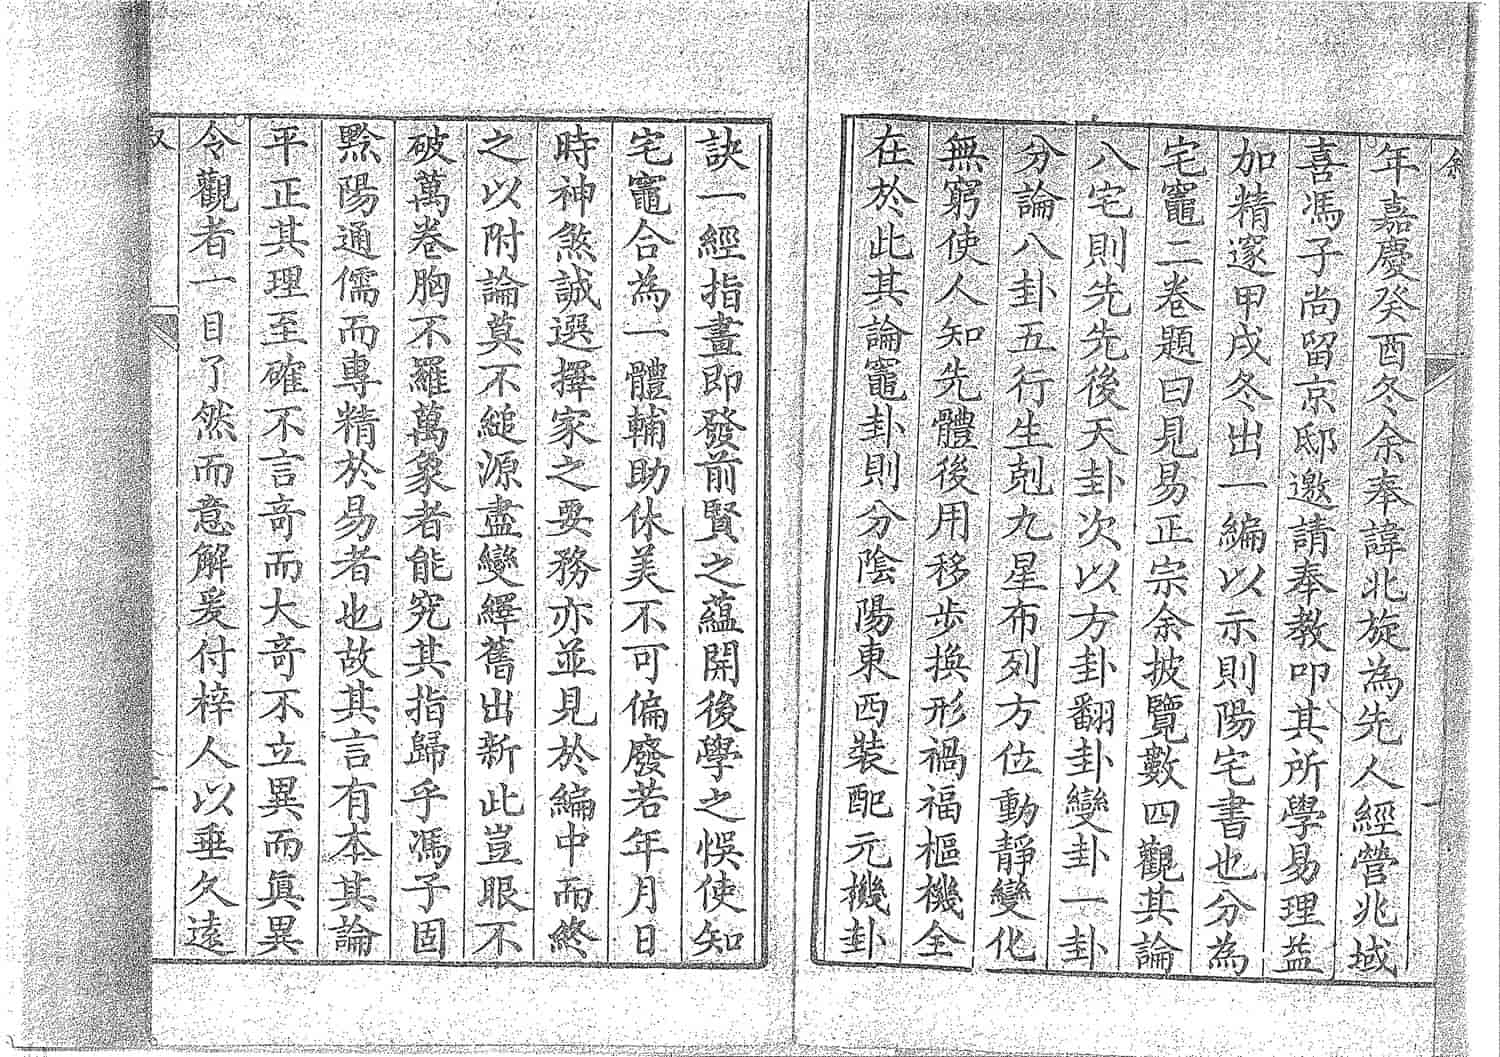 年嘉慶癸酉冬余奉諱北旋為先人經營兆域
喜馮子尚留京邸邀請奉教叩其所學易理益
加精邃甲戌冬出一編以示則陽宅書也分為
宅竈二卷題曰見易正宗余披覽數四觀其論
八宅則先先後天卦次以方卦翻卦變卦一卦
分論八卦五行生剋九星布列方位動靜變化
無窮使人知先體後用移步換形禍福樞機全
在於此其論竈卦則分陰陽東西裝配元機卦
訣一經指畫即發前賢之蘊開後學之悞使知
宅竈合為一體輔助休美不可偏廢若年月日
時神煞誠選擇家之要務亦並見於編中而終
之以附論莫不縋源盡變繹舊出新此豈眼不
破萬卷胸不羅萬象者能究其指歸乎馮子固
黔陽通儒而專精於易者也故其言有本其論
平正其理至確不言奇而大奇不立異而眞異
令觀者一目了然而意解爰付梓人以垂久遠